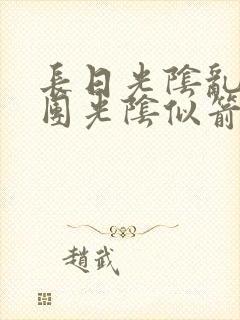 長日光陰亂
園光陰似箭
趙武